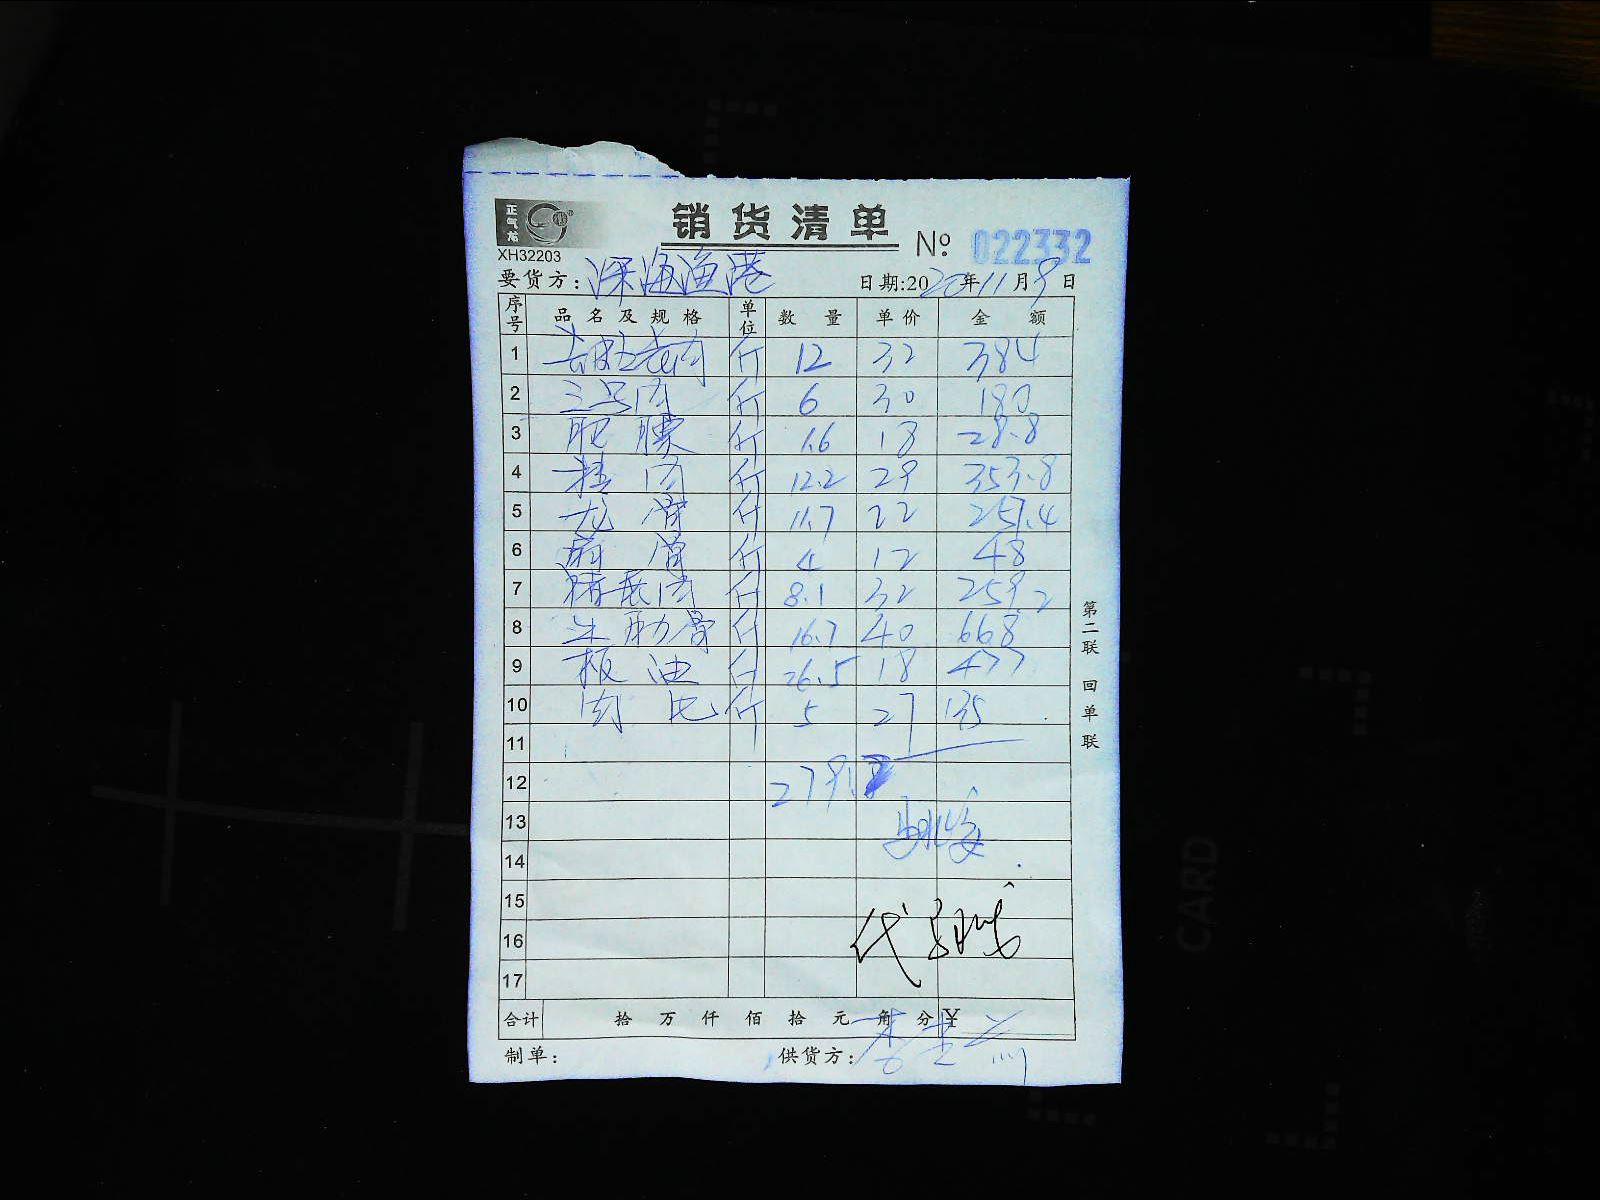 正气龙
销货清单
XH32203
№ 022332
要货方: 深海渔港 日期:2020年11月9日
序号 品名及规格 单位 数量 单价 金额
1 去皮五花肉 斤 12 32 384
2 三号肉 斤 6 30 180
3 肥膘 斤 1.6 18 28.8
4 肉 斤 12.2 29 353.8
5 龙骨 斤 11.7 22 257.4
6 扇骨 斤 4 12 48
7 猪展肉 斤 8.1 32 259.2
8 肋骨 斤 16.7 40 668
9 板油 斤 26.5 18 477
10 肉 斤 5 27 135
11
12 2791.
13
14
15
16 代
17
合计 拾 万 仟 佰 拾 元 角 分 ¥
制单: 供货方: 李
第二联 回单联
CARD